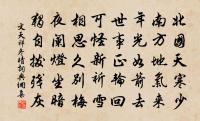 北國天寒少
南方地氣來
年光如去
世事正輪回
可怪新祈雪
相思久別梅
夜闌燈坐暗
自殘灰
文天祥冬晴